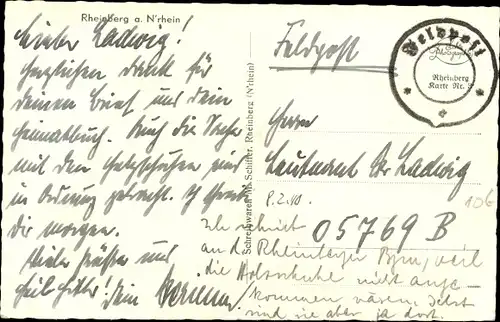 Rheinberg a. N'rhein
Lieber Ladwig!
Herzlichen Dank für
deinen Brief und dein
Heimatbuch. Auch die Sache
mit den Holzschuhen wird
in Ordnung gebracht. Ich schreibe
dir morgen.
Viele Grüße und
Heil Hitler! Dein Hermann
Schreibwaren M. Schiffer, Rheinberg (N'rhein)
Feldpost
Feldpost
Rheinberg
Karte Nr.
Herrn
Leutnant Dr. Ladwig
8.2.40.
05769 B
Ich schrieb
an die Rheinberger weil
die Holzschuhe nicht ange-
kommen wären. Jetzt
sind sie aber ja dort.